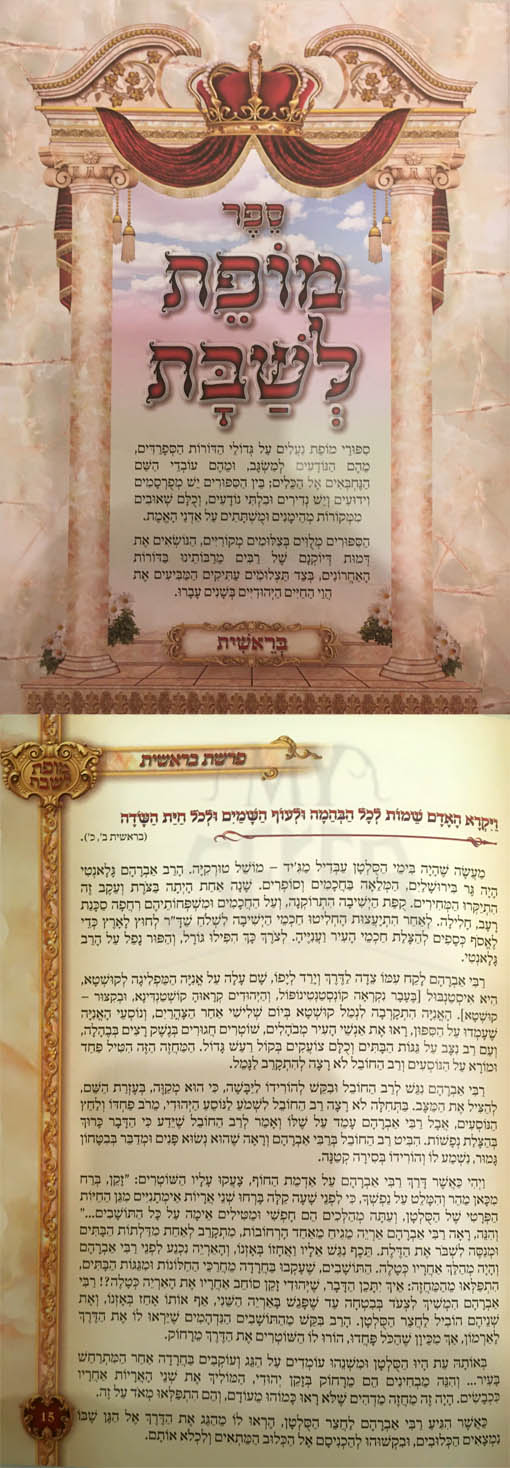 סֵפֶר
מוֹפֵת
לְשַׁבָּת
סִפּוּרֵי מוֹפֵת נַעֲלִים עַל גְּדוֹלֵי הַדּוֹרוֹת הַסְּפָרַדִּים,
מֵהֶם הַנּוֹדָעִים לְמִשְׂגָּב, וּמֵהֶם עוֹבְדֵי הַשֵּׁם
הַנֶּחְבָּאִים אֶל הַכֵּלִים; בֵּין הַסִּפּוּרִים יֵשׁ מְפֻרְסָמִים
וִידוּעִים וְיֵשׁ נְדִירִים וּבִלְתִּי נוֹדָעִים, וְכֻלָּם שְׁאוּבִים
מִמְּקוֹרוֹת מְהֵימָנִים וּמֻשְׁתָּתִים עַל אַדְנֵי הָאֱמֶת.
הַסִּפּוּרִים מְלֻוִּים בְּצִלּוּמִים מְקוֹרִיִּים, הַנּוֹשְׂאִים אֶת
דְּמוּת דְּיוֹקְנָם שֶׁל רַבִּים מֵרַבּוֹתֵינוּ בַּדּוֹרוֹת
הָאַחֲרוֹנִים, בְּצַד תַּצְלוּמִים עַתִּיקִים הַמַּבִּיעִים אֶת
הֲוַי הַחַיִּים הַיְּהוּדִיִּים בְּשָׁנִים עָבָרוּ.
בְּרֵאשִׁית
מופת לשבת
פרשת בראשית
וַיִּקְרָא הָאָדָם שֵׁמוֹת לְכָל הַבְּהֵמָה וּלְעוֹף הַשָּׁמַיִם וּלְכֹל חַיַּת הַשָּׂדֶה
(בראשית ב', כ').
מַעֲשֶׂה שֶׁהָיָה בִּימֵי הַסֻּלְטָן עַבְּדִיל מַגִ'יד – מוֹשֵׁל טוּרְקִיָּה. הָרַב אַבְרָהָם גָּלַאנְטִי
הָיָה גָּר בִּירוּשָׁלַיִם, הַמְּלֵאָה בַּחֲכָמִים וְסוֹפְרִים. שָׁנָה אַחַת הָיְתָה בַּצֹּרֶת וְעֵקֶב זֶה
הִתְיַקְּרוּ הַמְּחִירִים. קֻפַּת הַיְשִׁיבָה הִתְרוֹקְנָה, וְעַל הַחֲכָמִים וּמִשְׁפְּחוֹתֵיהֶם רִחֲפָה סַכָּנַת
רָעָב, חָלִילָה. לְאַחַר הִתְיָעֲצוּת הֶחְלִיטוּ חַכְמֵי הַיְשִׁיבָה לִשְׁלֹחַ שַׁדָּ"ר לְחוּץ לָאָרֶץ כְּדֵי
לֶאֱסֹף כְּסָפִים לְהַצָּלַת חַכְמֵי הָעִיר וַעֲנִיֶּיהָ. לְצֹרֶךְ כָּךְ הִפִּילוּ גּוֹרָל, וְהַפּוּר נָפַל עַל הָרַב
גָּלַאנְטִי.
רַבִּי אַבְרָהָם לָקַח עִמּוֹ צֵדָה לַדֶּרֶךְ וְיָרַד לְיָפוֹ, שָׁם עָלָה עַל אֳנִיָּה הַמַּפְלִיגָה לְקוּשְׁטָא,
הִיא אִיסְטַנְבּוּל [בֶּעָבָר נִקְרְאָה קוֹנְסְטַנְטִינוֹפּוֹל, וְהַיְּהוּדִים קְרָאוּהָ קוֹשְׁטַנְדִּינָא, וּבְקִצּוּר –
קוּשְׁטָא]. הָאֳנִיָּה הִתְקָרְבָה לִנְמַל קוּשְׁטָא בְּיוֹם שְׁלִישִׁי אַחַר הַצָּהֳרַיִם, וְנוֹסְעֵי הָאֳנִיָּה
שֶׁעָמְדוּ עַל הַסִּפּוּן, רָאוּ אֶת אַנְשֵׁי הָעִיר מְבֹהָלִים, שׁוֹטְרִים חֲגוּרִים בְּנֶשֶׁק רָצִים בְּבֶהָלָה,
וְעַם רַב נִצָּב עַל גַּגּוֹת הַבָּתִּים וְכֻלָּם צוֹעֲקִים בְּקוֹל רַעַשׁ גָּדוֹל. הַמַּחֲזֶה הַזֶּה הִטִּיל פַּחַד
וּמוֹרָא עַל הַנּוֹסְעִים וְרַב הַחוֹבֵל לֹא רָצָה לְהִתְקָרֵב לַנָּמֵל.
רַבִּי אַבְרָהָם נִגַּשׁ לְרַב הַחוֹבֵל וּבִקֵּשׁ לְהוֹרִידוֹ לַיַּבָּשָׁה, כִּי הוּא מְקַוֶּה, בְּעֶזְרַת הַשֵּׁם,
לְהַצִּיל אֶת הַמַּצָּב. בַּתְּחִלָּה לֹא רָצָה רַב הַחוֹבֵל לִשְׁמֹעַ לַנּוֹסֵעַ הַיְּהוּדִי, מֵרֹב פַּחְדּוֹ וְלַחַץ
הַנּוֹסְעִים, אֲבָל רַבִּי אַבְרָהָם עָמַד עַל שֶׁלּוֹ וְאָמַר לְרַב הַחוֹבֵל שֶׁיֵּדַע כִּי הַדָּבָר כָּרוּךְ
בְּהַצָּלַת נְפָשׁוֹת. הִבִּיט רַב הַחוֹבֵל בְּרַבִּי אַבְרָהָם וְרָאָה שֶׁהוּא נְשׂוּא פָּנִים וּמְדַבֵּר בְּבִטָּחוֹן
גָּמוּר, נִשְׁמַע לוֹ וְהוֹרִידוֹ בְּסִירָה קְטַנָּה.
וַיְהִי כַּאֲשֶׁר דָּרַךְ רַבִּי אַבְרָהָם עַל אַדְמַת הַחוֹף, צָעֲקוּ עָלָיו הַשּׁוֹטְרִים: "זָקֵן, בְּרַח
מִכָּאן מַהֵר וְהִמָּלֵט עַל נַפְשְׁךָ, כִּי לִפְנֵי שָׁעָה קַלָּה בָּרְחוּ שְׁנֵי אֲרָיוֹת אֵימְתָנִיִּים מִגַּן הַחַיּוֹת
הַפְּרָטִי שֶׁל הַסֻּלְטָן, וְעַתָּה מְהַלְּכִים הֵם חָפְשִׁי וּמַטִּילִים אֵימָה עַל כָּל הַתּוֹשָׁבִים..."
וְהִנֵּה, רָאָה רַבִּי אַבְרָהָם אַרְיֵה מֵגִיחַ מֵאַחַד הָרְחוֹבוֹת, מִתְקָרֵב לְאַחַת מִדַּלְתוֹת הַבָּתִּים
וּמְנַסֶּה לִשְׁבֹּר אֶת הַדֶּלֶת. תֵּכֶף נִגַּשׁ אֵלָיו וַאֲחָזוֹ בְּאָזְנוֹ, וְהָאַרְיֵה נִכְנַע לִפְנֵי רַבִּי אַבְרָהָם
וְהָיָה מְהַלֵּךְ אַחֲרָיו כְּטָלֶה. הַתּוֹשָׁבִים, שֶׁעָקְבוּ בַּחֲרָדָה מֵחֲרַכֵּי הַחַלּוֹנוֹת וּמִגַּגּוֹת הַבָּתִּים,
הִתְפַּלְּאוּ מֵהַמַּחֲזֶה: אֵיךְ יִתָּכֵן הַדָּבָר, שֶׁיְּהוּדִי זָקֵן סוֹחֵב אַחֲרָיו אֶת הָאַרְיֵה כְּטָלֶה?! רַבִּי
אַבְרָהָם הִמְשִׁיךְ לִצְעֹד בְּבִטְחָה עַד שֶׁפָּגַשׁ בָּאַרְיֵה הַשֵּׁנִי, אַף אוֹתוֹ אָחַז בְּאָזְנוֹ, וְאֶת
שְׁנֵיהֶם הוֹבִיל לַחֲצַר הַסֻּלְטָן. הָרַב בִּקֵּשׁ מֵהַתּוֹשָׁבִים הַנִּדְהָמִים שֶׁיַּרְאוּ לוֹ אֶת הַדֶּרֶךְ
לָאַרְמוֹן, אַךְ מִכֵּיוָן שֶׁהַכֹּל פָּחֲדוּ, הוֹרוּ לוֹ הַשּׁוֹטְרִים אֶת הַדֶּרֶךְ מֵרָחוֹק.
בְּאוֹתָהּ עֵת הָיוּ הַסֻּלְטָן וּמִשְׁנֵהוּ עוֹמְדִים עַל הַגַּג וְעוֹקְבִים בַּחֲרָדָה אַחַר הַמִּתְרַחֵשׁ
בָּעִיר... וְהִנֵּה מַבְחִינִים הֵם מֵרָחוֹק בְּזָקֵן יְהוּדִי, הַמּוֹלִיךְ אֶת שְׁנֵי הָאֲרָיוֹת אַחֲרָיו
כִּכְבָשִׂים. הָיָה זֶה מַחֲזֶה מַדְהִים שֶׁלֹּא רָאוּ כָּמוֹהוּ מֵעוֹדָם, וְהֵם הִתְפַּלְּאוּ מְאֹד עַל זֶה.
כַּאֲשֶׁר הִגִּיעַ רַבִּי אַבְרָהָם לַחֲצַר הַסֻּלְטָן, הֶרְאוּ לוֹ מֵהַגַּג אֶת הַדֶּרֶךְ אֶל הַגַּן שֶׁבּוֹ
נִמְצָאִים הַכְּלוּבִים, וּבִקְשׁוּהוּ לְהַכְנִיסָם אֶל הַכְּלוּב הַמַּתְאִים וְלִכְלֹא אוֹתָם.
15